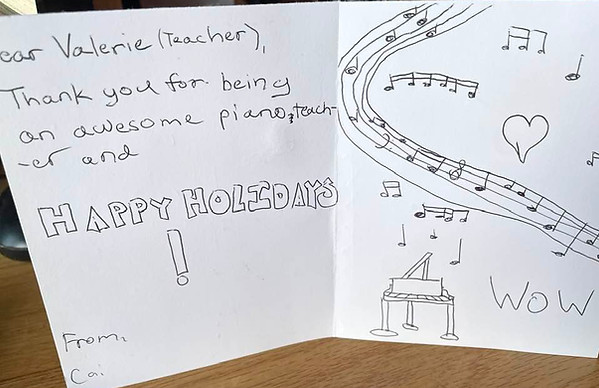 ear Valerie (Teacher),
Thank you for being
an awesome piano teach-
-er and
HAPPY HOLIDAYS
!
From,
Cai
WOW